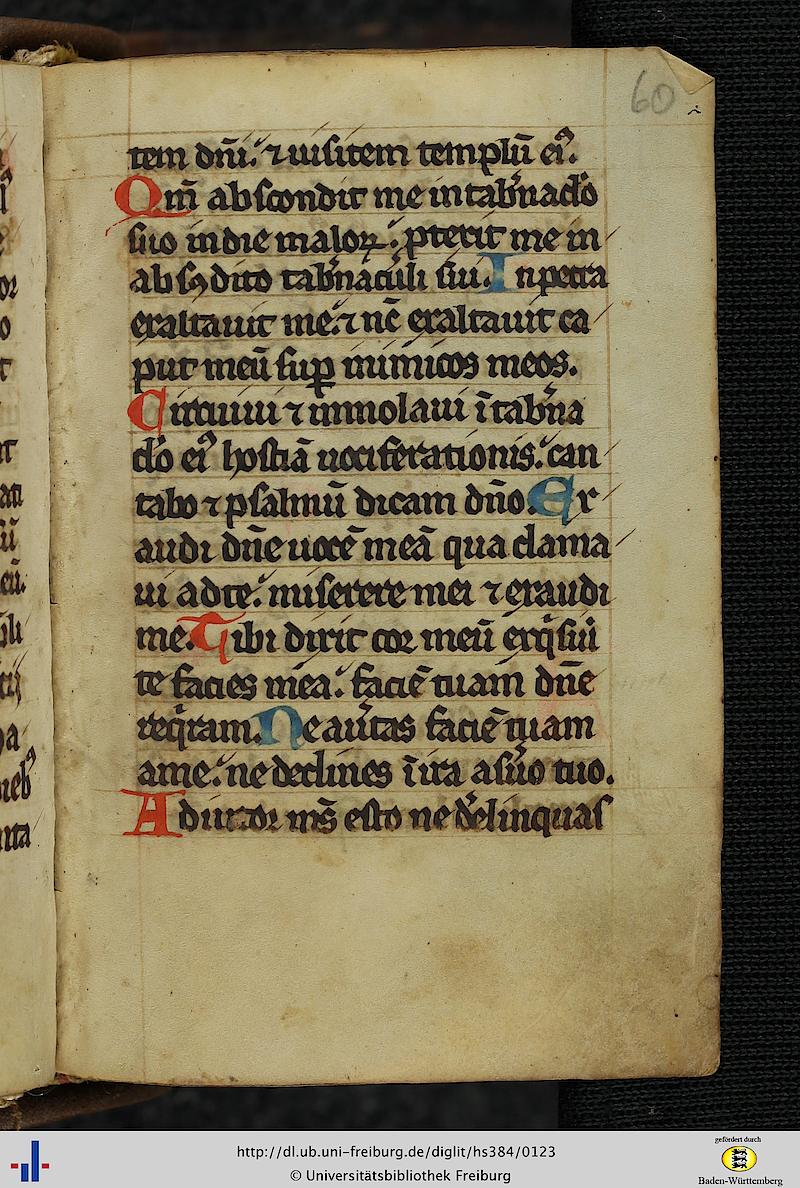 60
tem dñi. ⁊ uisitem templū eiꝰ.
Qm̄ abscondit me in tab̄naclo
suo in die maloꝝ. ꝓterit me in
absↄdito tab̄naculi sui. In petra
exaltauit me. ⁊ nc̄ exaltauit ca
put meū suꝑ inimicos meos.
Circuiui ⁊ immolaui ī tab̄na
clo eiꝰ hostiā uociferationis. can
tabo ⁊ psalmū dicam dño. Ex
audi dñe uocē meā qua clama
ui ad te. miserere mei ⁊ exaudi
me. Tibi dixit cor meū exq̇siuit
te facies mea. faciē tuam dñe
reqͥram. Ne au̓tas faciē tuam
a me. ne declines ī ira a s̓uo tuo.
Adiutor ms̄ esto ne d̓elinquas
http://dl.ub.uni-freiburg.de/diglit/hs384/0123
© Universitätsbibliothek Freiburg
gefördert durch
Baden-Württemberg